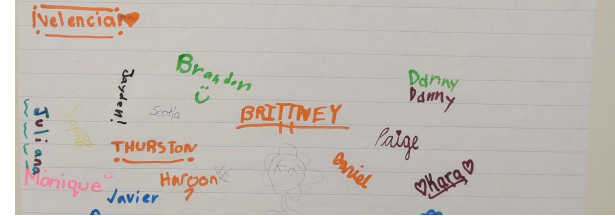 ¡Velencia!
Brandon
Danny
Danny
Jayden!
Scotia
BRITTNEY
Juliana
Paige
THURSTON
Daniel
Monique
Haroon
Kara
Javier